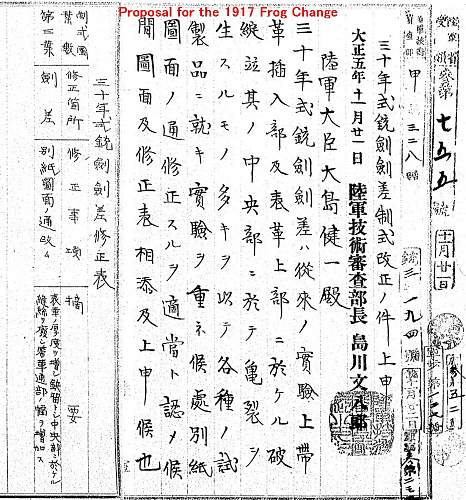 Proposal for the 1917 Frog Change
甲
三二八号
第七五五號
十一月廿一日
三十年式銃劍劍差制式改正ノ件上申
大正五年十一月廿一日 陸軍技術審査部長 島川文八郎
陸軍大臣大島健一殿
三十年式銃劍劍差ハ従来ノ實驗上帶
革插入部及表革上部ニ於ケル破
綻並其ノ中央部ニ於テ亀裂ヲ
生スルモノ多キヲ以テ各種ノ試
製品ニ就キ實驗ヲ重ネ候處別紙
圖面ノ通修正スルヲ適當ト認メ候
間圖面及修正表相添及上申候也
三十年式銃劍劍差修正表
制式圖葉数 修正箇所 修正事項 摘要
第二葉 劍差 別紙圖面ノ通改ム
表革ノ厚サ度ヲ増シ
中央部ニ於ケル
ノ幅ヲ増加ス